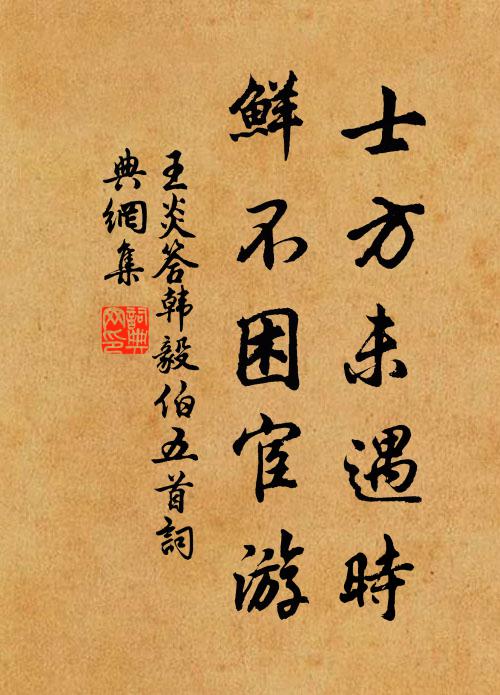 士方未遇時
鮮不困宦游
王炎答韩毅伯五首詞
典網集
詞典
网印